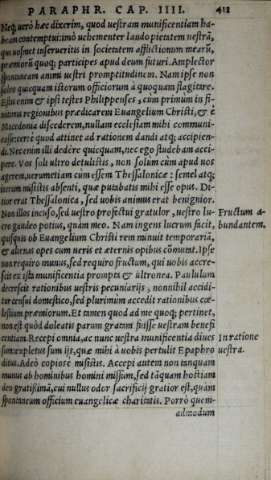 PARAPHR. CAP. IIII. 412
Neq; uerò hæc dixerim, quod uestram munificentiam ha-
beam contemptui: imò uehementer laudo pietatem uestrā,
qui uosmet inserueritis in societatem afflictionum mearū,
præmiorū quoq; participes apud deum futuri. Amplector
spontaneam animi uestri promptitudinem. Nam ipse non
soleo quicquam istorum officiorum à quoquam flagitare.
Estis enim & ipsi testes Philippenses, cùm primum in fi-
nitimis regionibus prædicarem Euangelium Christi, & è
Macedonia discederem, nullam ecclesiam mihi communi-
casse: certè quod attinet ad rationem dandi atq; accipien-
di. Nec enim illi dedêre quicquam, nec ego studebam acci-
pere. Vos soli ultro detulistis, non solum cùm apud uos
agerem, uerumetiam cùm essem Thessalonicæ: semel atq;
iterum misistis absenti, quæ putabatis mihi esse opus. Di-
tior erat Thessalonica, sed uobis animus erat benignior.
Non illos inciso, sed uestro profectui gratulor, uestro lu- Fructum a-
cro gaudeo potius, quàm meo. Nam ingens lucrum facit, bundantem.
quisquis ob Euangelium Christi rem minuit temporariā,
& alienas opes cum ueris et æternis opibus cōmutat. Ipse
non requiro munus, sed requiro fructum, qui uobis accre-
scit ex ista munificentia prompta & ultronea. Paululum
decrescit rationibus uestris pecuniarijs, nonnihil accidi-
tur censui domestico, sed plurimum accedit rationibus cœ-
lestium præmiorum. Et tamen quod ad me quoq; pertinet,
non est quòd doleatis parum gratam fuisse uestram benefi
centiam. Recepi omnia, ac nunc uestra munificentia diues In ratione
sum: expletus sum ijs, quæ mihi à uobis pertulit Epaphro uestra.
ditus. Adeò copiosè misistis. Accepi autem non tanquam
munus ab hominibus homini missum, sed tāquam hostiam
deo gratissimā, cui nullus odor sacrificij gratior est, quàm
spontaneum officium euangelicæ charitatis. Porrò quem-
admodum